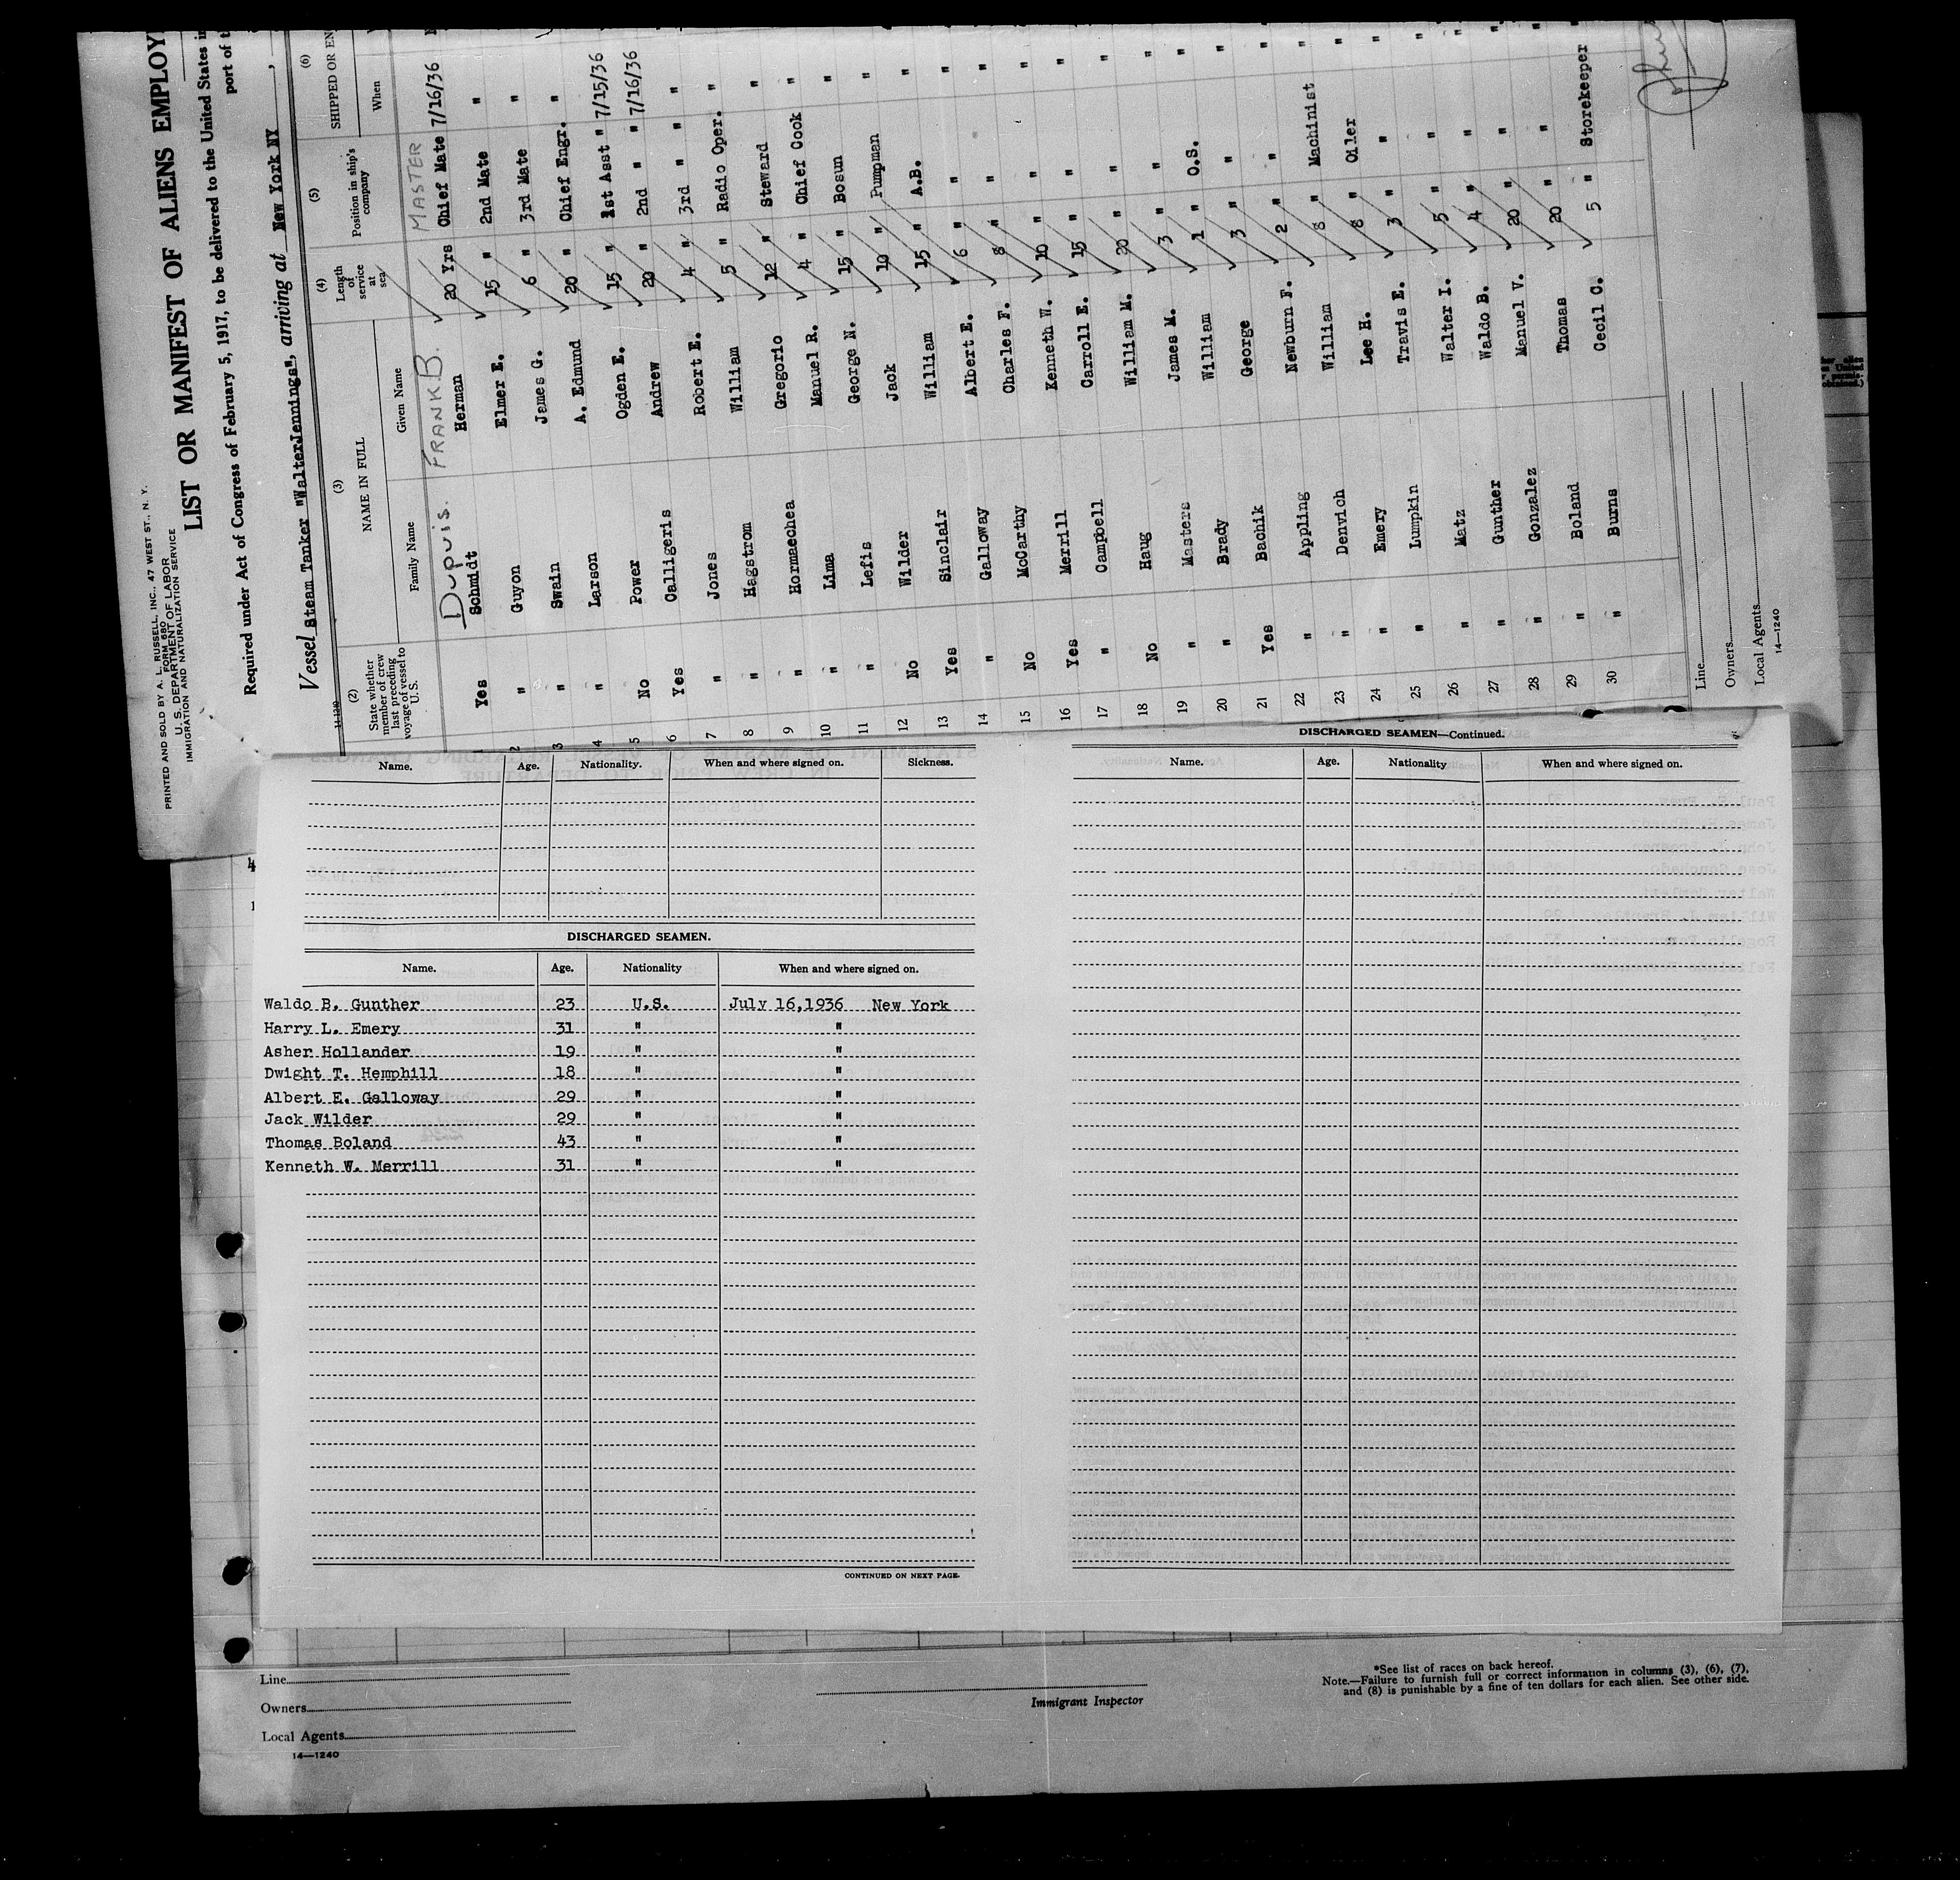 PRINTED AND SOLD BY A. L. RUSSELL, INC., 47 WEST ST., N. Y.
FORM 680
U. S. DEPARTMENT OF LABOR
IMMIGRATION AND NATURALIZATION SERVICE
LIST OR MANIFEST OF ALIENS EMPLOY
Required under Act of Congress of February 5, 1917, to be delivered to the United States
port of
Vessel Steam Tanker "WalterJennings", arriving at New York NY ,
(2) (3) (4) (5) (6)
State whether member of crew last preceding voyage of vessel to U.S. NAME IN FULL Length of service at sea Position in ship's company SHIPPED OR EN
Family Name Given Name When
DUPUIS. FRANK.B. MASTER
1 Yes Schmidt Herman 20 Yrs Chief Mate 7/16/36
2 " Guyon Elmer E. 15 " 2nd Mate "
3 " Swain James G. 6 " 3rd Mate "
4 " Larson A. Edmund 20 " Chief Engr. "
5 No Power Ogden E. 15 " 1st Asst " 7/15/36
6 Yes Calligeris Andrew 20 " 2nd " " 7/16/36
7 " Jones Robert E. 4 " 3rd " " "
8 " Hagstrom William 5 " Radio Oper. "
9 " Hormaechea Gregorio 12 " Steward "
10 " Lima Manuel R. 4 " Chief Cook "
11 " Lefis George N. 15 " Bosun "
12 No Wilder Jack 10 " Pumpman "
13 Yes Sinclair William 15 " A.B. "
14 " Galloway Albert E. 6 " " "
15 No McCarthy Charles F. 8 " " "
16 Yes Merrill Kenneth W. 10 " " "
17 " Campbell Carroll E. 15 " " "
18 No Haug William M. 20 " " "
19 " Masters James M. 3 " " "
20 " Brady William 1 " O.S. "
21 Yes Bachik George 3 " " "
22 " Appling Newburn F. 2 " " "
23 " Denvich William 8 " Machinist "
24 " Emery Lee H. 8 " Oiler "
25 " Lumpkin Travis E. 3 " " "
26 " Matz Walter I. 5 " " "
27 " Gunther Waldo B. 4 " " "
28 " Gonzalez Manuel V. 20 " " "
29 " Boland Thomas 20 " " "
30 " Burns Cecil C. 5 " Storekeeper "
Line
Owners
Local Agents
14—1240
Name. Age. Nationality. When and where signed on. Sickness.
DISCHARGED SEAMEN.
Name. Age. Nationality When and where signed on.
Waldo B. Gunther 23 U.S. July 16,1936 New York
Harry L. Emery 31 " "
Asher Hollander 19 " "
Dwight T. Hemphill 18 " "
Albert E. Galloway 29 " "
Jack Wilder 29 " "
Thomas Boland 43 " "
Kenneth W. Merrill 31 " "
CONTINUED ON NEXT PAGE.
DISCHARGED SEAMEN—Continued.
Name. Age. Nationality When and where signed on.
Line
Owners
Local Agents
14—1240
Immigrant Inspector
*See list of races on back hereof.
Note.—Failure to furnish full or correct information in columns (3), (6), (7),
and (8) is punishable by a fine of ten dollars for each alien. See other side.